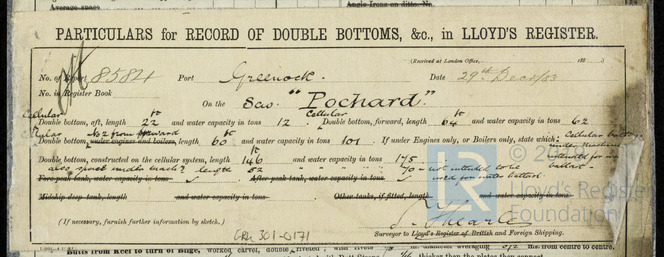 Average space
Angle Irons on ditto, No.
PARTICULARS for RECORD OF DOUBLE BOTTOMS, &c., in LLOYD'S REGISTER.
(Received at London Office, 188 )
No. of Report 8584 Port Greenock. Date 29th Dec 83
No. in Register Book
On the Scw. "Pochard."
Cellular Cellular
Double bottom, aft, length 22 ft and water capacity in tons 12. Double bottom, forward, length 64 ft and water capacity in tons 62
No 2 from forward
Double bottom, under engines and boilers, length 60 ft and water capacity in tons 101. If under Engines only, or Boilers only, state which:
Double bottom, constructed on the cellular system, length 146 ft and water capacity in tons 175
length 52 " 70 - not intended to be
Fore peak tank, water capacity in tons After peak tank, water capacity in tons used for water ballast.
Midship deep tank, length and water capacity in tons Other tanks, if fitted, length and water capacity in tons
(If necessary, furnish further information by sketch.)
Surveyor to Lloyd's Register of British and Foreign Shipping.
LR
©
Lloyd's Register
Foundation